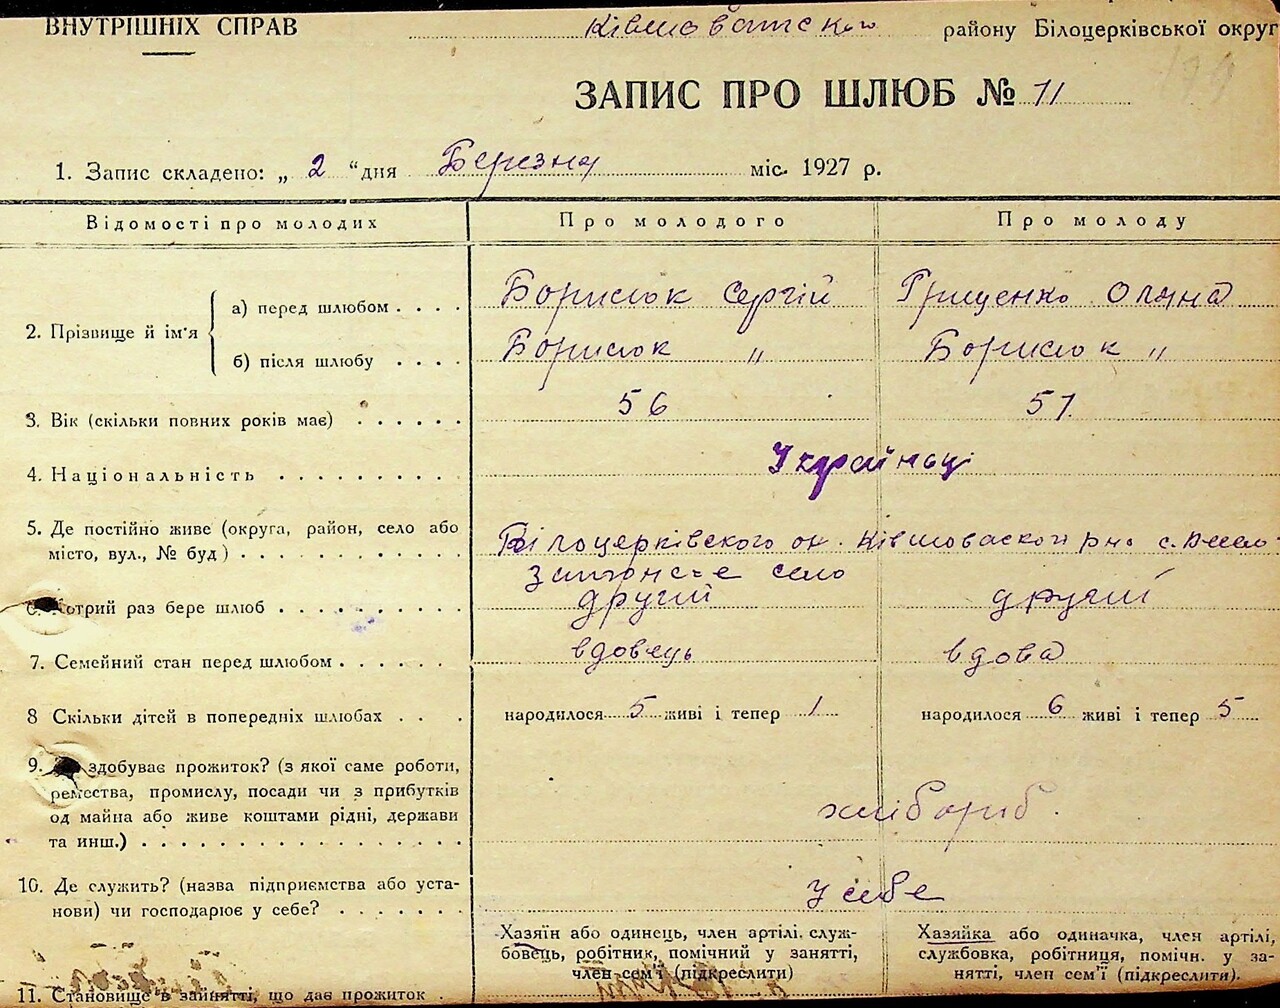 ВНУТРІШНІХ СПРАВ Ківшоватского району Білоцерківської округ
ЗАПИС ПРО ШЛЮБ № 11
1. Запис складено: „ 2 “ дня Березня міс. 1927 р.
Відомості про молодих Про молодого Про молоду
2. Прізвище й ім'я
а) перед шлюбом . . . . Борисюк Сергій Грищенко Оляна
б) після шлюбу . . . . Борисюк „ Борисюк „
3. Вік (скільки повних років має) . . . . . . 56 51
4. Національність . . . . . . . . . . Українці
5. Де постійно живе (округа, район, село або
місто, вул., № буд) . . . . . . . . . . . Білоцерківского ок. Ківшоваског рна с.
село
6. Котрий раз бере шлюб . . . . . . . . . другий другий
7. Семейний стан перед шлюбом . . . . . . вдовець вдова
8 Скільки дітей в попередніх шлюбах . . . народилося 5 живі і тепер 1 народилося 6 живі і тепер 5
9. здобуває прожиток? (з якої саме роботи,
ремества, промислу, посади чи з прибутків
од майна або живе коштами рідні, держави хлібороб.
та инш.) . . . . . . . . . . . . . . . .
10. Де служить? (назва підприємства або уста-
нови) чи господарює у себе? . . . . . . . У себе
Хазяїн або одинець, член артілі, служ-
бовець, робітник, помічний у занятті,
член сем'ї (підкреслити)
Хазяйка або одиначка, член артілі,
службовка, робітниця, помічн. у за-
нятті, член сем'ї (підкреслити).
11. Становище в занятті, що дає прожиток .